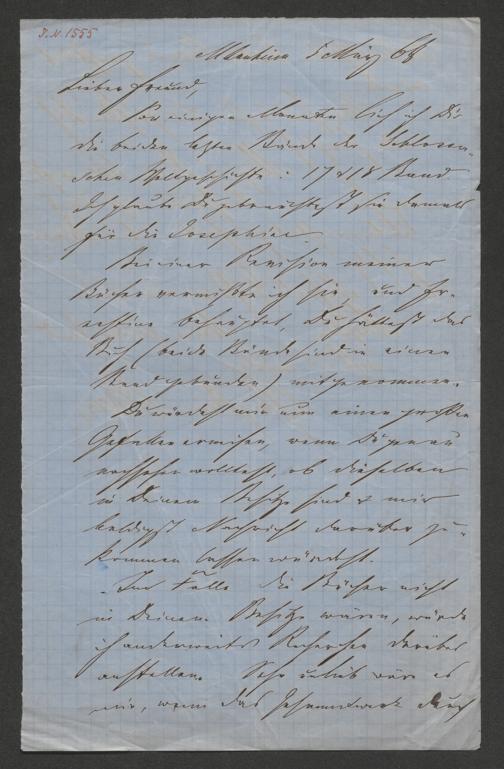 J.N. 1555
5 März 68
Lieber Freund,
Vor einigen Monaten lieh ich Dir
die beiden letzten Bände der Schlosser-
schen Weltgeschichte: 17 & 18 Band
Ich glaube Du gebrauchtest sie damals
für die Josephine.
Bei einer Revision meiner
Bücher vermißte ich sie, und Er-
nestine behauptet, Du hättest das
Buch (beide Bände sind in einen
Band gebunden) mitgenommen.
Du würdest mir nun einen großen
Gefallen erweisen, wenn Du genau
nachsehen wolltest, ob dieselben
in Deinem Besitze sind & mir
baldigst Nachricht darüber zu-
kommen lassen würdest.
Im Falle die Bücher nicht
in Deinem Besitze wären, würde
ich anderweits Recherchen darüber
anstellen. Sehr unlieb wär es
mir, wenn das Gesammtwerk durch